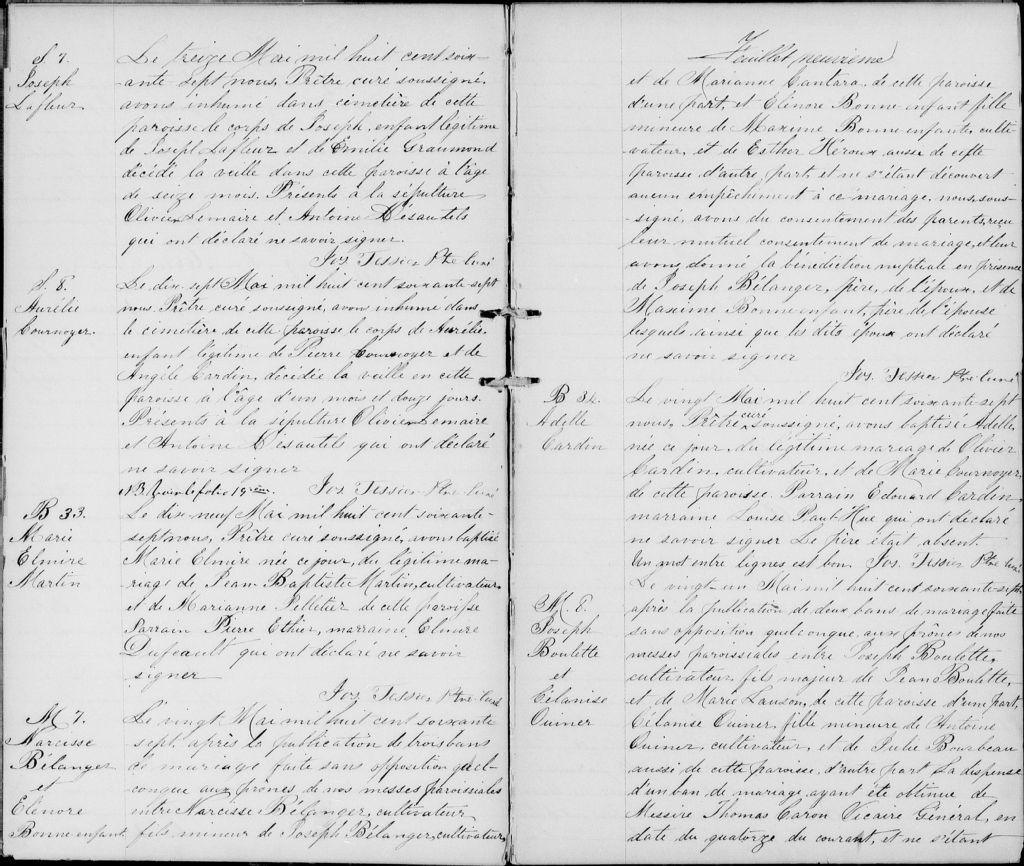 S 7.
Joseph
Lafleur
Le treize Mai mil huit cent soix-
ante sept nous, Prêtre curé soussigné,
avons inhumé dans cimetière de cette
paroisse le corps de Joseph, enfant légitime
de Joseph Lafleur et de Emilie Graumond
décédé la veille dans cette paroisse à l'âge
de seize mois. Présents à la sépulture
Olivier Lemaire et Antoine Desautels
qui ont déclaré ne savoir signer.
Jos Tessier Ptre Curé
S. 8.
Aurélie
Cournoyer.
Le dix sept Mai mil huit cent soixante sept
nous, Prêtre curé soussigné, avons inhumé dans
le cimetière de cette paroisse le corps de Aurélie,
enfant légitime de Pierre Cournoyer et de
Angèle Cardin, décédée la veille en cette
paroisse à l'âge d'un mois et douze jours.
Présents à la sépulture Olivier Lemaire
et Antoine Desautels qui ont déclaré
ne savoir signer
NB Voir le folio 19ème. Jos Tessier Ptre Curé
B 33.
Marie
Elmire
Martin
Le dix neuf Mai mil huit cent soixante-
sept nous, Prêtre curé soussigné, avons baptisé
Marie Elmire née ce jour, du légitime ma-
riage de Jean Baptiste Martin, cultivateur
et de Marianne Pelletier de cette paroisse
Parrain Pierre Ethier, marraine, Elmire
Dufeault qui ont déclaré ne savoir
signer
Jos Tessier Ptre Curé
M 7.
Narcisse
Bélanger
et
Elénore
Bonne enfant.
Le vingt Mai mil huit cent soixante
sept, après la publication de trois bans
de mariage faite sans opposition quel-
conque aux prônes de nos messes paroissiales
entre Narcisse Bélanger, cultivateur
fils mineur de Joseph Bélanger, cultivateur,
Feuillet neuvième
et de Marianne Cantara, de cette paroisse
d'une part, et Elénore Bonne-enfant fille
mineure de Maxime Bonne-enfant, culti-
vateur, et de Esther Héroux aussi de cette
paroisse d'autre part, et ne s'étant découvert
aucun empêchement à ce mariage, nous, sous-
signé, avons du consentement des parents, reçu
leur mutuel consentement de mariage, et leur
avons donné la bénédiction nuptiale en présence
de Joseph Bélanger, père, de l'époux, et de
Maxime Bonne-enfant, père de l'épouse
lesquels ainsi que les dits époux ont déclaré
ne savoir signer
Jos. Tessier Ptre Curé
B 34.
Adelle
Cardin
Le vingt Mai mil huit cent soixante sept
nous, Prêtre curé soussigné, avons baptisé Adelle,
née ce jour, du légitime mariage de Olivier
Cardin, cultivateur, et de Marie Cournoyer,
de cette paroisse. Parrain Edouard Cardin,
marraine Louise Paul-Hue qui ont déclaré
ne savoir signer Le père était absent.
Un mot entre lignes est bon. Jos. Tessier Ptre Curé
M. 8.
Joseph
Boulette
et
Célanise
Ouiner
Le vingt-un Mai mil huit cent soixante sept
après la publication de deux bans de mariage faite
sans opposition quelconque, aux prônes de nos
messes paroissiales entre Joseph Boulette,
cultivateur, fils majeur de Jean Boulette,
et de Marie Lauson, de cette paroisse d'une part,
Célanise Ouiner, fille mineure de Antoine
Ouiner, cultivateur, et de Julie Bourbeau
aussi de cette paroisse, d'autre part La dispense
d'un ban de mariage, ayant été obtenue de
Messire Thomas Caron Vicaire Général, en
date du quatorze du courant, et ne s'étant